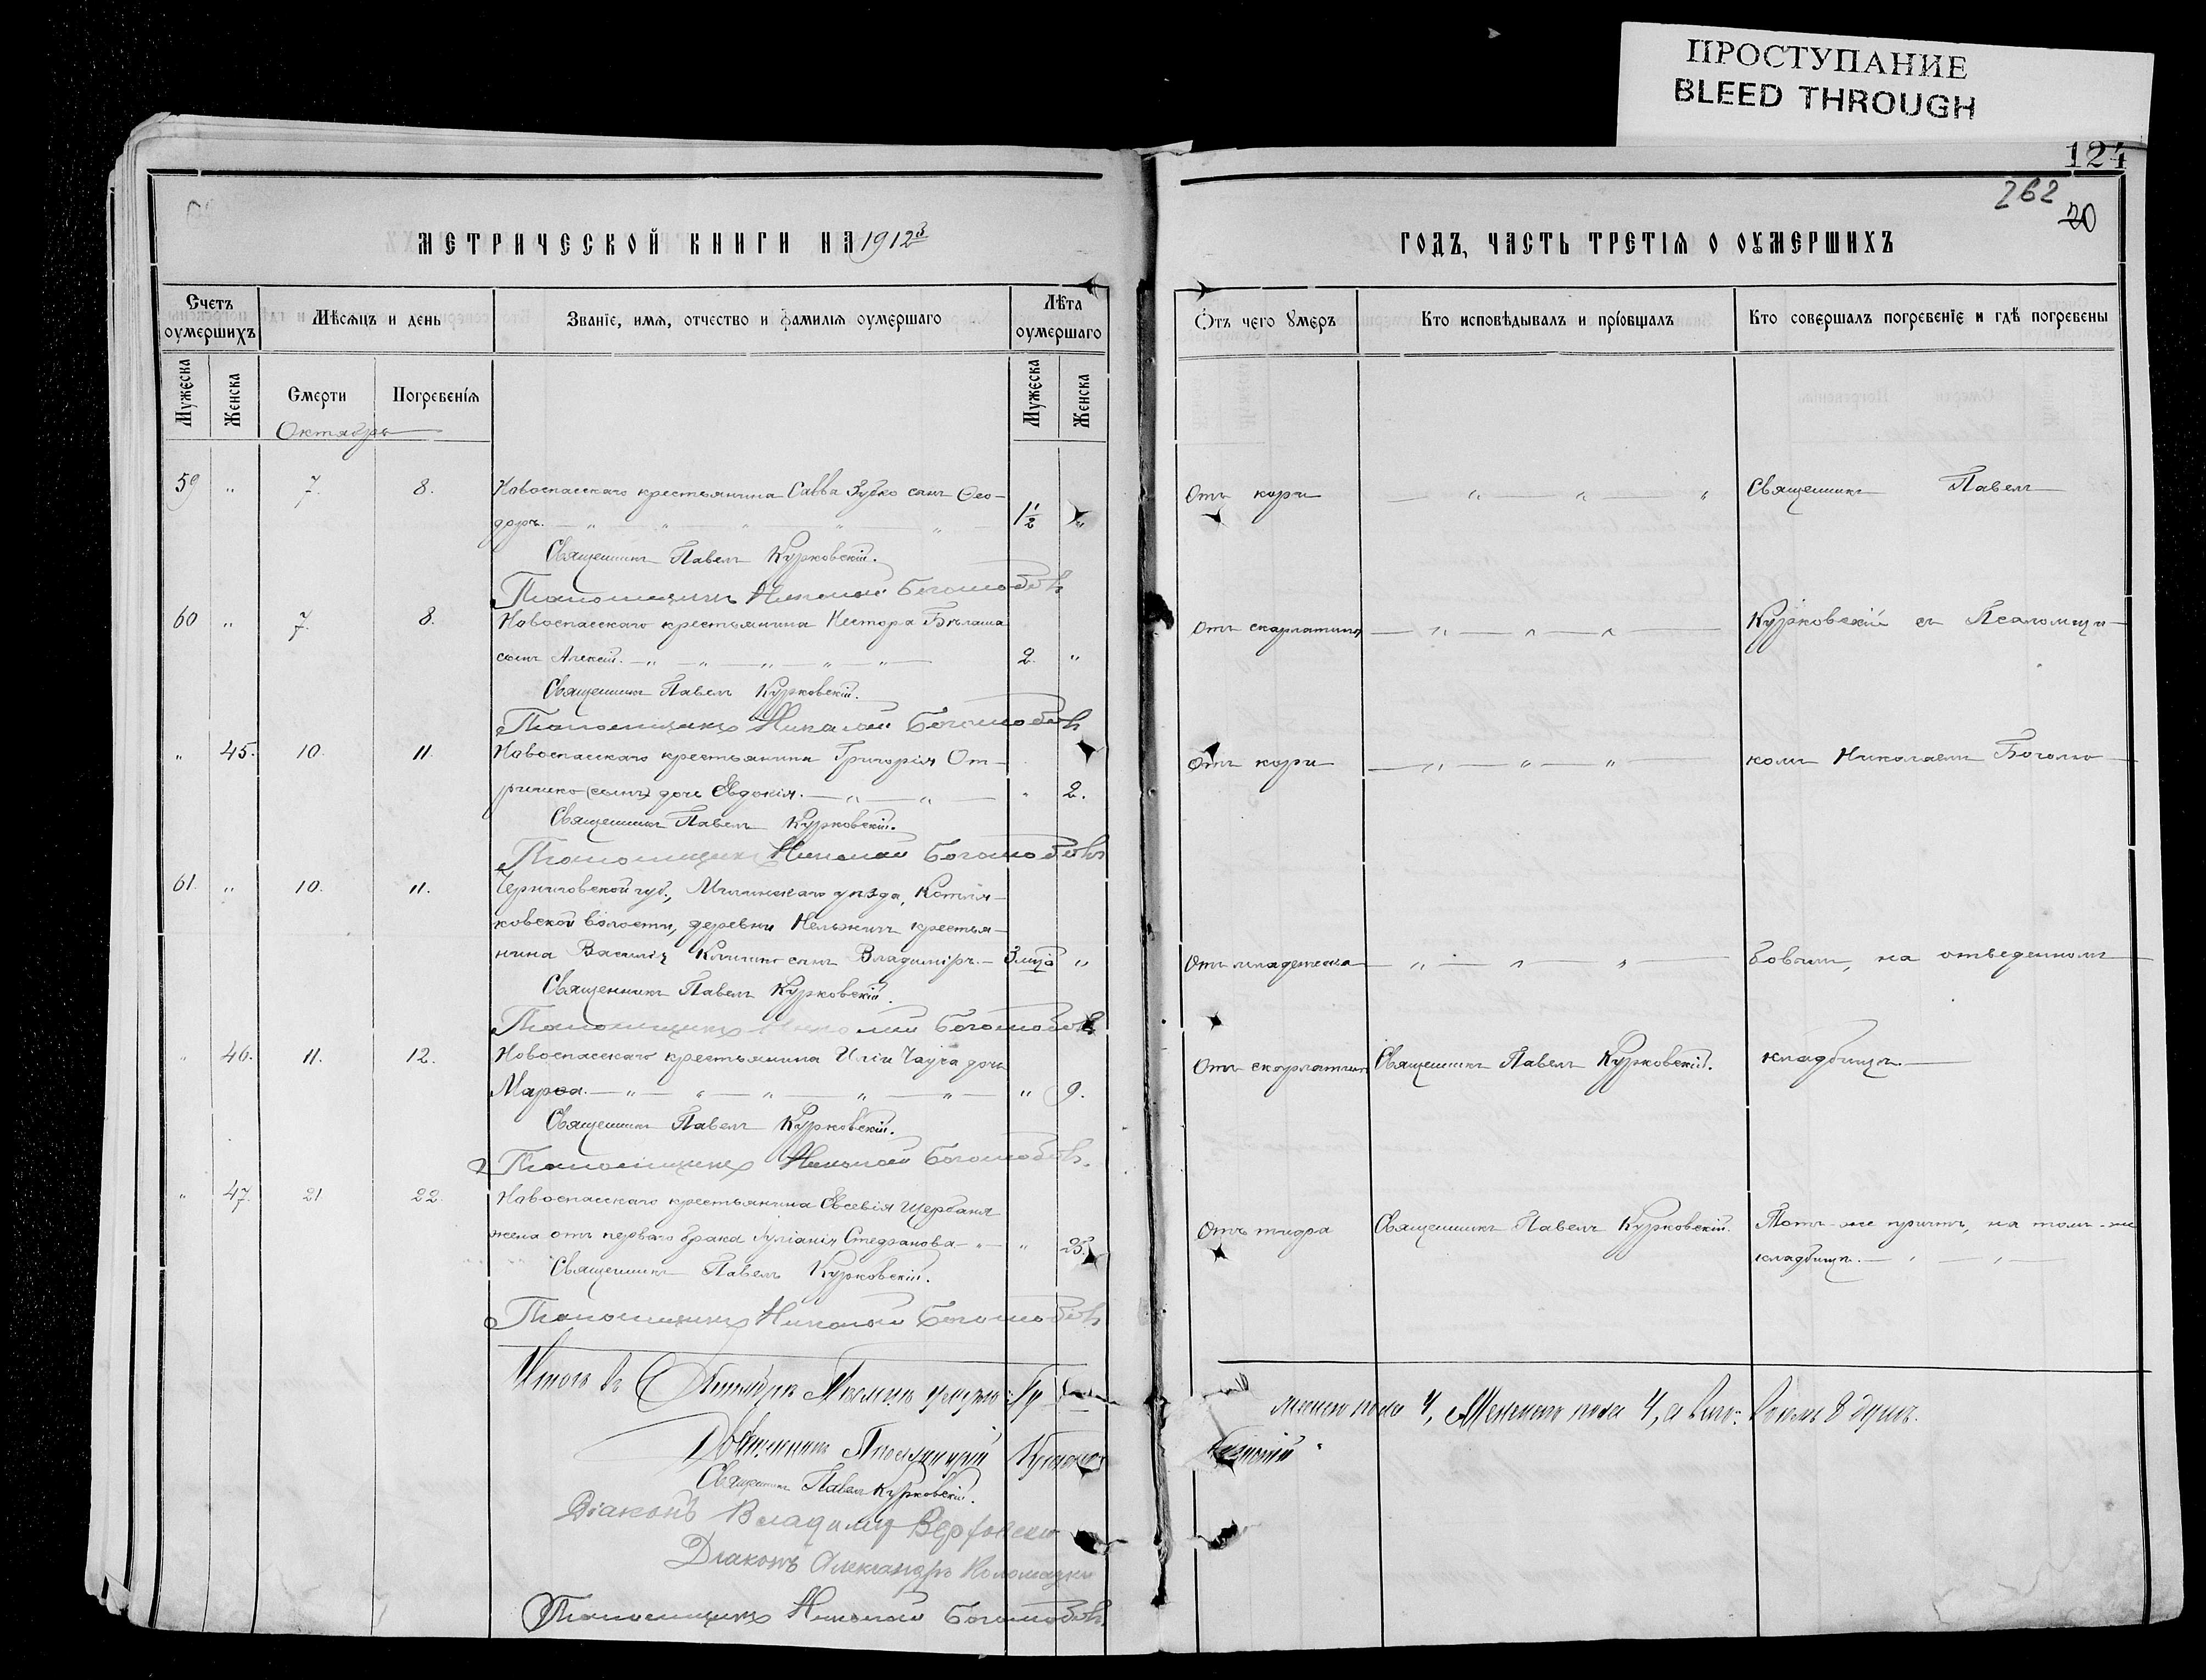 ПРОСТУПАНИЕ
BLEED THROUGH
124
262
20
МЕТРИЧЕСКОЙ КНИГИ НА 1912й
ГОДЪ, ЧАСТЬ ТРЕТІЯ О ОУМЕРШИХЪ
Счетъ оумершихъ
Мѣсяцъ и день
Званіе, имя, отчество и фамилія оумершаго
Лѣта оумершаго
Отъ чего умеръ
Кто исповѣдывалъ и пріобщалъ
Кто совершалъ погребеніе и гдѣ погребены
Мужеска
Женска
Смерти
Погребенія
Мужеска
Женска
Октябрь
59 " 7. 8. Новоспасскаго крестьянина Савва Зубко сынъ Ѳео-
доръ. 1½ "
Отъ кори
Священникъ Павелъ
Священникъ Павелъ Курковскій.
Псаломщикъ Николай Боголюбовъ
60 " 7. 8. Новоспасскаго крестьянина Нестора Бѣлаша
сынъ Алексій. 2. "
Отъ скарлатины
Курковскій съ Псаломщи-
Священникъ Павелъ Курковскій.
Псаломщикъ Николай Боголюбовъ
" 45. 10. 11. Новоспасскаго крестьянина Григорія От-
(сынъ) дочь Евдокія. " 2.
Отъ кори
комъ Николаемъ Боголю-
Священникъ Павелъ Курковскій.
Псаломщикъ Николай Боголюбовъ
61. " 10. 11. Черниговской губ., Мглинскаго уѣзда, Котля-
ковской волости, деревни крестья-
нина Василія сынъ Владиміръ. 3 мцъ "
Отъ младенска
бовымъ, на отведенномъ
Священникъ Павелъ Курковскій.
Псаломщикъ Николай Боголюбовъ
" 46. 11. 12. Новоспасскаго крестьянина Иліи дочь
Марѳа. " 9.
Отъ скарлатины
Священникъ Павелъ Курковскій.
кладбищѣ.
Священникъ Павелъ Курковскій.
Псаломщикъ Николай Боголюбовъ.
" 47. 21. 22. Новоспасскаго крестьянина Евсевія Щербаня
жена отъ перваго брака Іуліанія Стефанова " 25.
Отъ тифа
Священникъ Павелъ Курковскій.
Тотъ-же причтъ, на томъ-же
кладбищѣ.
Священникъ Павелъ Курковскій.
Псаломщикъ Николай Боголюбовъ
Итого въ Октябрѣ Мѣсяцѣ умерло: Му
жескаго пола 4, Женскаго пола 4, а всего: Восемь 8 душъ.
Священникъ
Священникъ Павелъ Курковскій.
Діаконъ Владимір
Діаконъ Александръ
Псаломщикъ Николай Боголюбовъ.